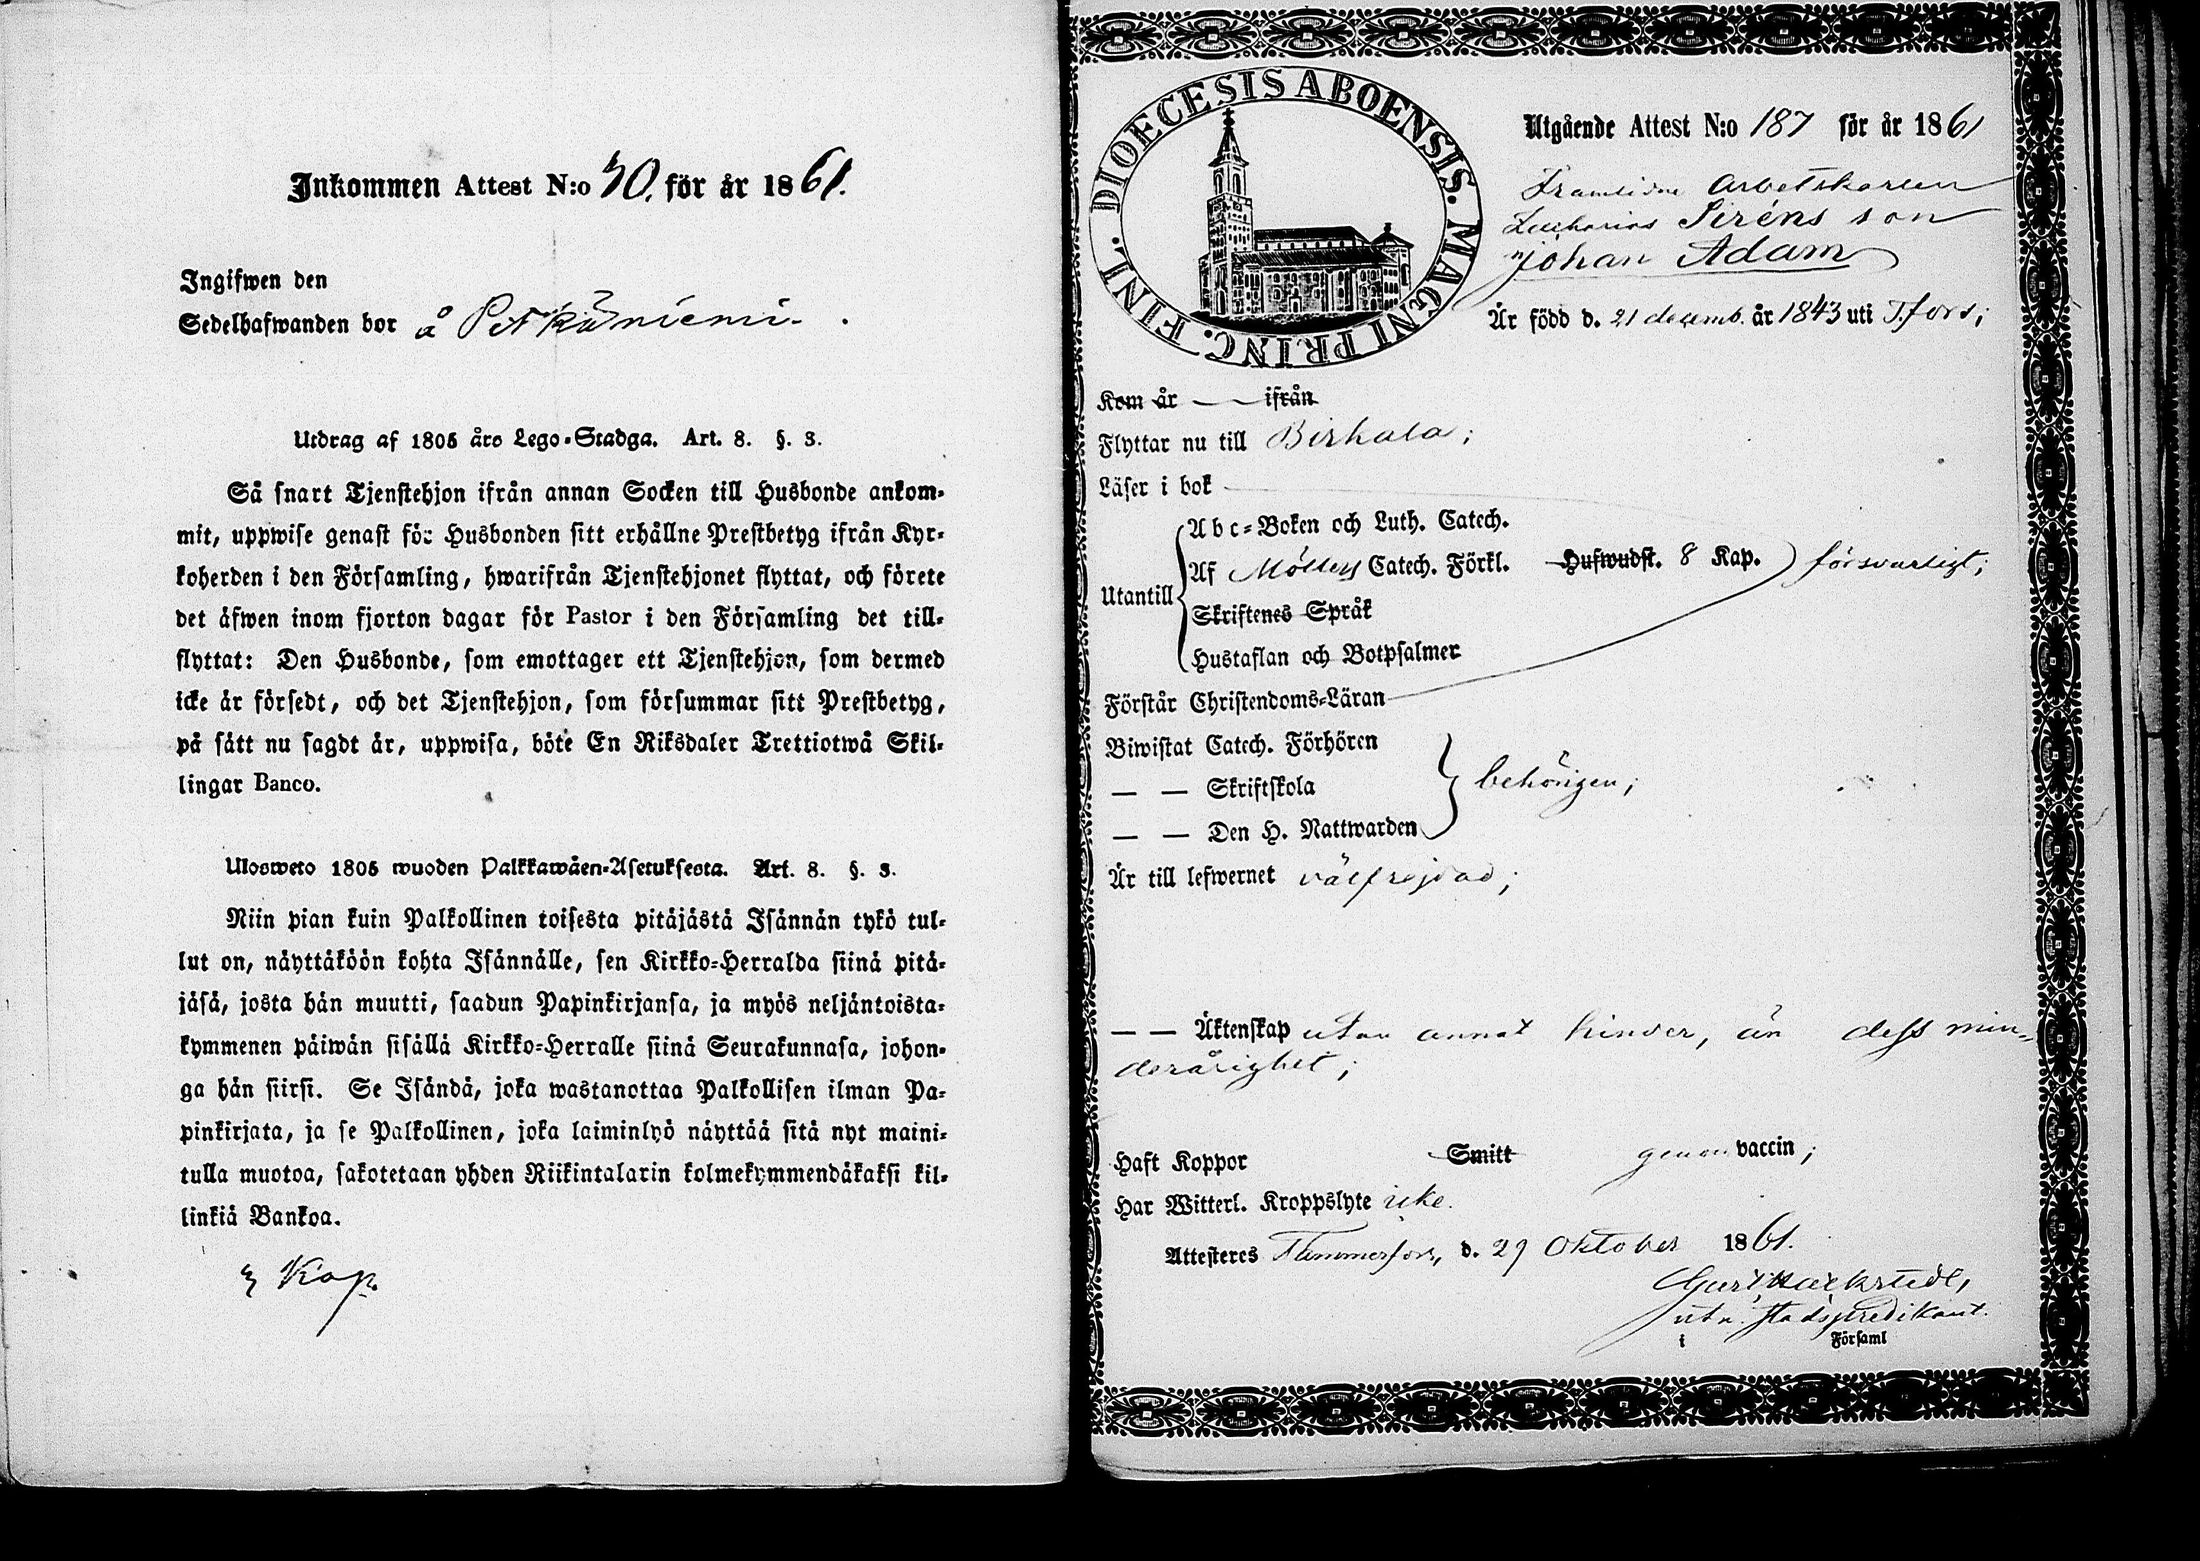 Inkommen Attest N:o 50. för år 1861.
Ingifwen den
Sedelhafwanden bor å Pitkäniemi.
Utdrag af 1805 års Lego-Stadga. Art. 8. §. 3.
Så snart Tjenstehjon ifrån annan Socken till Husbonde ankom-
mit, uppwise genast för Husbonden sitt erhållne Prestbetyg ifrån Kyr-
koherden i den Församling, hwarifrån Tjenstehjonet flyttat, och förete
det äfwen inom fjorton dagar för Pastor i den Församling det till-
flyttat: Den Husbonde, som emottager ett Tjenstehjon, som dermed
icke är försedt, och det Tjenstehjon, som försummar sitt Prestbetyg,
på sätt nu sagdt är, uppwisa, böte En Riksdaler Trettiotwå Skil-
lingar Banco.
Ulosweto 1805 wuoden Palkkawäen-Asetuksesta. Art. 8. §. 3.
Niin pian kuin Palkollinen toisesta pitäjästä Isännän tykö tul-
lut on, näyttäköön kohta Isännälle, sen Kirkko-Herralda siinä pitä-
jäsä, josta hän muutti, saadun Papinkirjansa, ja myös neljäntoista-
kymmenen päiwän sisällä Kirkko-Herralle siinä Seurakunnasa, johon-
ga hän siirsi. Se Isändä, joka wastanottaa Palkollisen ilman Pa-
pinkirjata, ja se Palkollinen, joka laiminlyö näyttää sitä nyt maini-
tulla muotoa, sakotetaan yhden Riikintalarin kolmekymmendäkaksi kil-
linkiä Bankoa.
Kop.
DIOECESIS ABOENSIS. MAGNI PRINC. FINL.
Utgående Attest N:o 187 för år 1861
Framlidne Arbetskarlen
Zacharias Siréns son
Johan Adam
Är född d. 21 decemb. år 1843 uti T.fors;
Kom år — ifrån
Flyttar nu till Birkala;
Läser i bok
Utantill
Abc-Boken och Luth. Catech.
Af Möllers Catech. Förkl. Hufwudst. 8 Kap. försvarligt;
Skriftenes Språk
Hustaflan och Botpsalmer
Förstår Christendoms-Läran
Biwistat Catech. Förhören
— — Skriftskola behörigen;
— — Den H. Nattwarden
Är till lefwernet välfrejdad;
— — Äktenskap utan annat hinder, än dess min-
derårighet;
Haft Koppor Smitt genom vaccin;
Har Witterl. Kroppslyte icke.
Attesteres Tammerfors, d. 29 Oktober 1861.
utn. stadspredikant.
i Församl